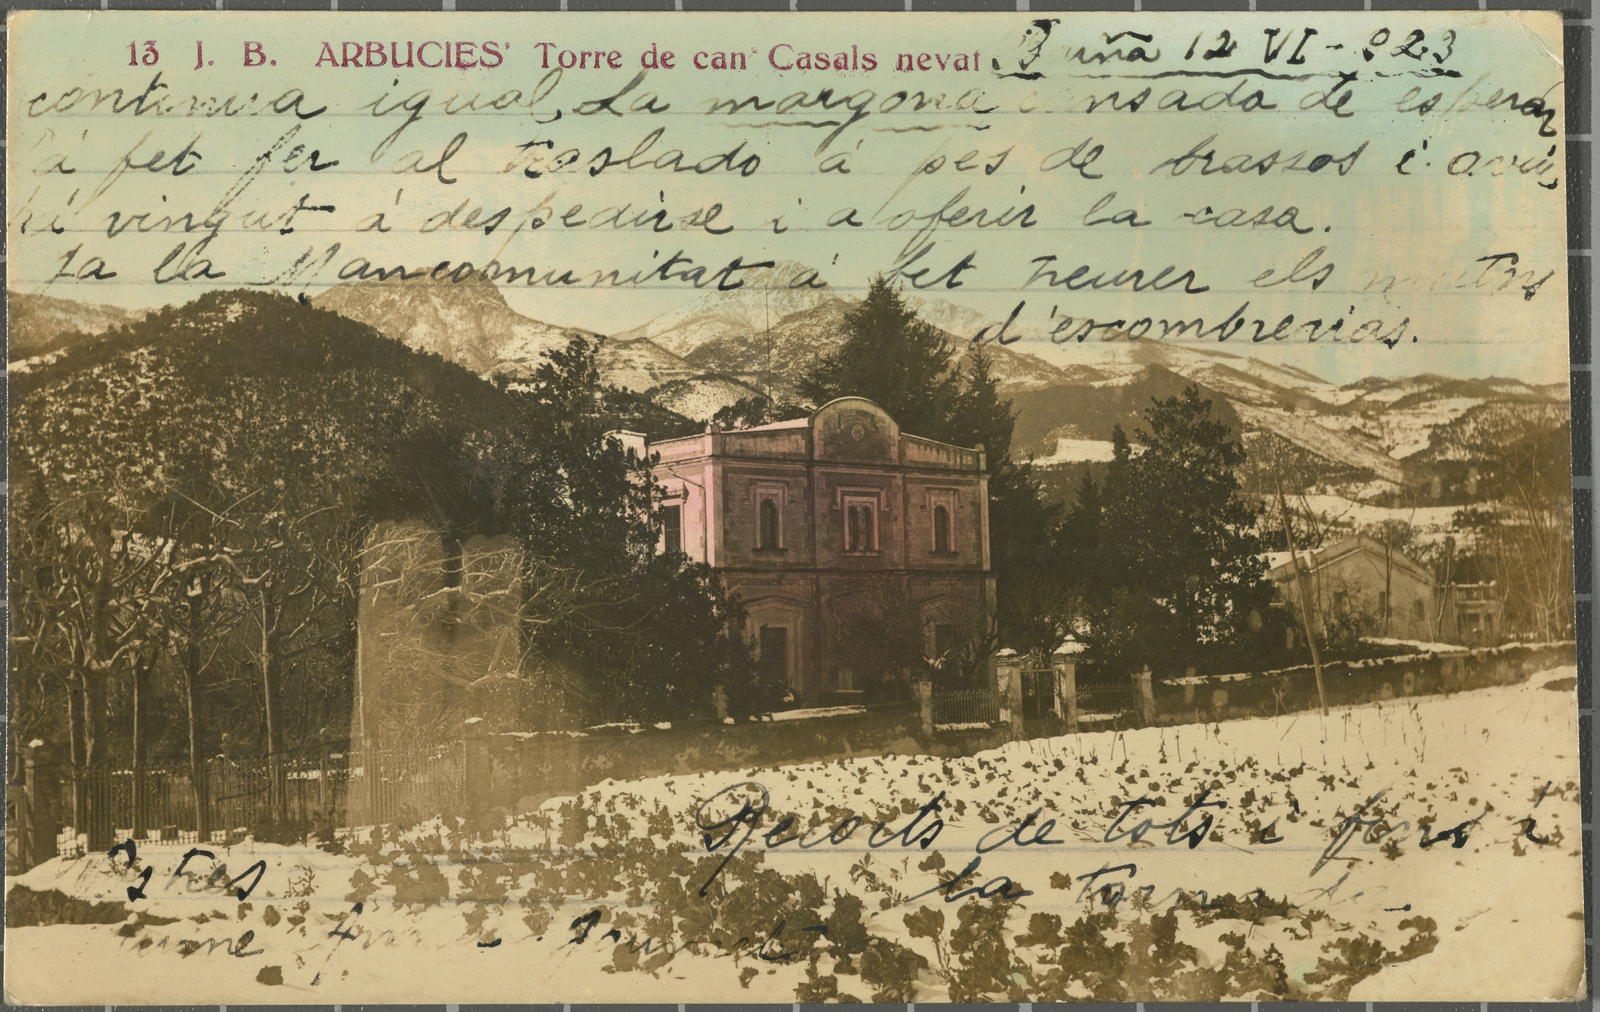 13 J. B. ARBUCIES' Torre de can Casals nevat
12 VI - 923
continua igual. La margona cansada de esperar
á fet fer al traslado á pes de brassos i avui
hi vingut á despedirse i a oferir la casa.
Ja la Mancomunitat á fet treurer els
d'escombrerias.
Recorts de tots i fins á
la tornada
tres
Jaume